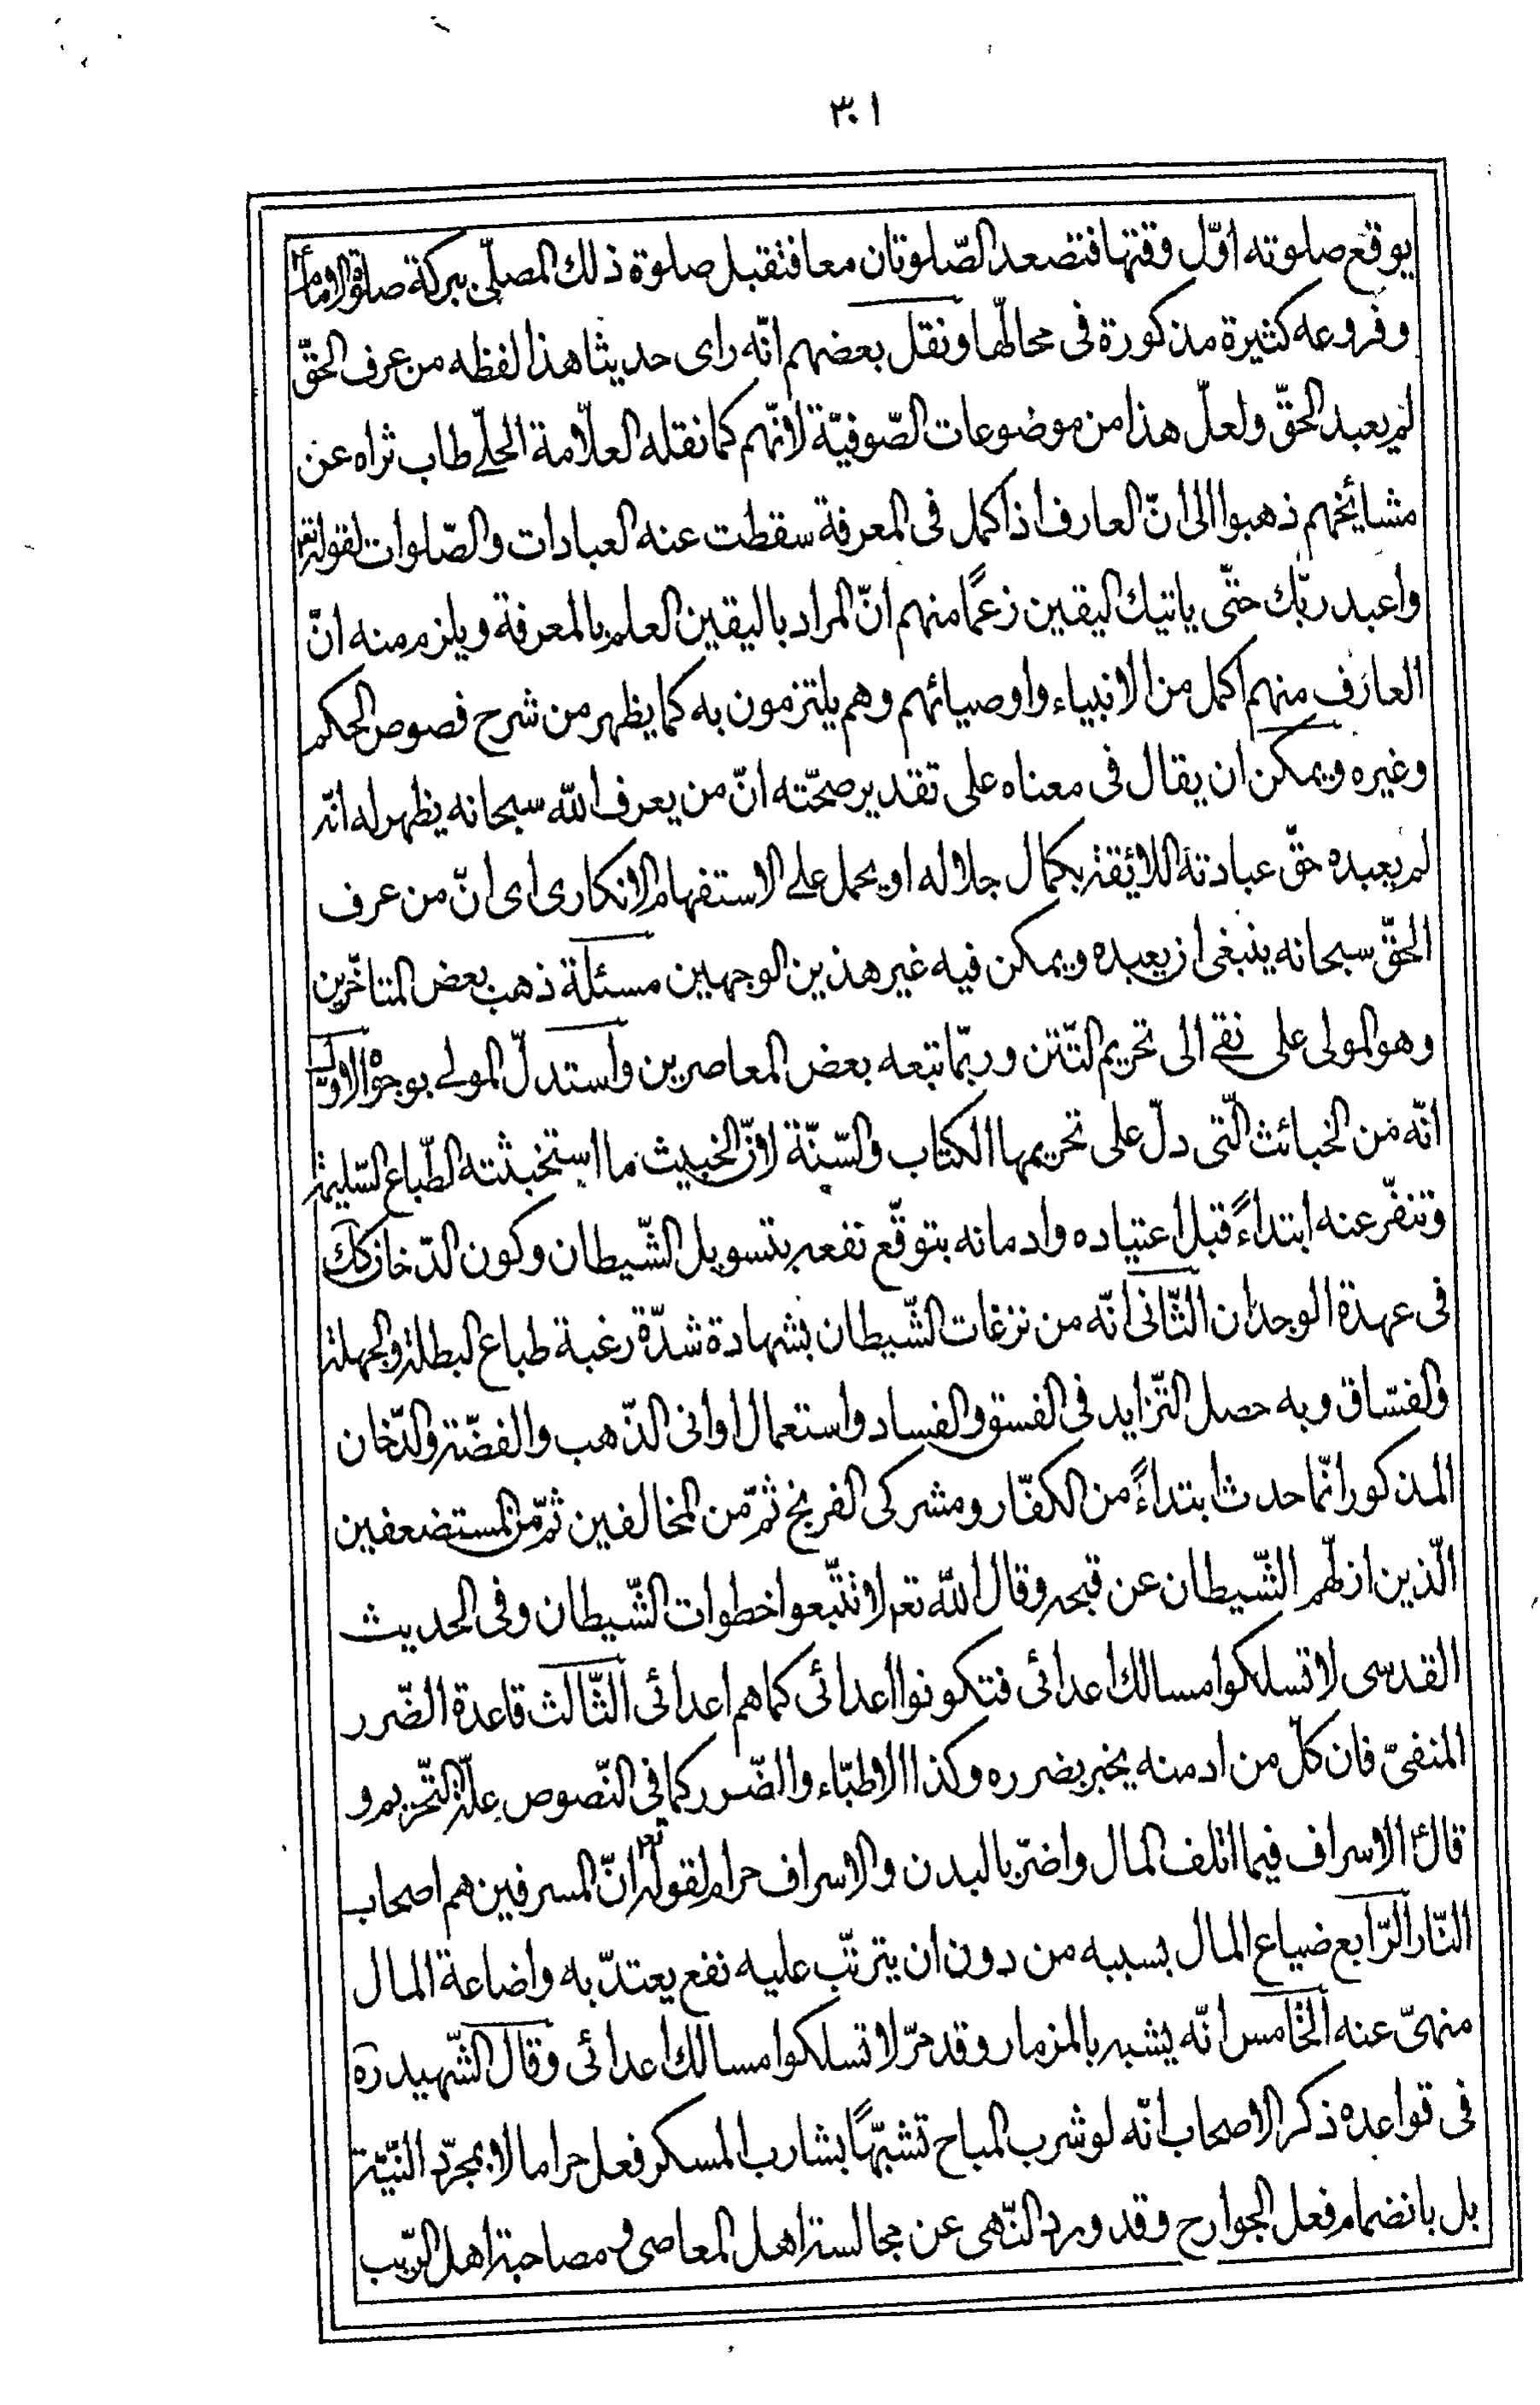 ٣٠١
يوقع صلوته اوّل وقتها فتصعد الصّلوتان معا فتقبل صلوة ذلك المصلّى ببركة صلوة الامام
وفروعه كثيرة مذكورة فى محالّها ونقل بعضهم انّه راى حديثا هذا لفظه من عرف الحقّ
لم يعبد الحقّ ولعلّ هذا من موضوعات الصّوفيّة لانّهم كما نقله العلّامة الحلّى طاب ثراه عن
مشائخهم ذهبوا الى انّ العارف اذا كمل فى المعرفة سقطت عنه العبادات والصّلوات لقوله تع
واعبد ربّك حتّى ياتيك اليقين زعمًا منهم انّ المراد باليقين العلم بالمعرفة ويلزم منه انّ
العارف منهم اكمل من الانبياء واوصيائهم وهم يلتزمون به كما يظهر من شرح فصوص الحكم
وغيره ويمكن ان يقال فى معناه على تقدير صحّته انّ من يعرف الله سبحانه يظهر له انّه
لم يعبده حقّ عبادته اللائقة بكمال جلاله او يحمل على الاستفهام الانكارى اى انّ من عرف
الحقّ سبحانه ينبغى ان يعبده ويمكن فيه غير هذين الوجهين مسئلة ذهب بعض المتاخّرين
وهو المولى على نقى الى تحريم التّتن وربّما تبعه بعض المعاصرين واستدلّ المولى بوجوه الاوّل
انّه من الخبائث الّتى دلّ على تحريمها الكتاب والسّنّة لانّ الخبيث ما استخبثته الطّباع السّليمة
وتنفّر عنه ابتداءً قبل اعتياده وادمانه بتوقّع نفعه بتسويل الشّيطان وكون الدّخان كك
فى عهدة الوجدان الثّانى انّه من نزغات الشّيطان بشهادة شدّة رغبة طباع البطلة والجهلة
والفسّاق وبه حصل التّزايد فى الفسق والفساد واستعمال اوانى الذّهب والفضّة والدّخان
المذكور انّما حدث ابتداءً من الكفّار ومشركى الفرنج ثمّ من المخالفين ثمّ من المستضعفين
الّذين ازلّهم الشّيطان عن قبحه وقال الله تع لا تتّبعوا خطوات الشّيطان وفى الحديث
القدسى لا تسلكوا مسالك اعدائى فتكونوا اعدائى كما هم اعدائى الثّالث قاعدة الضّرر
المنفىّ فان كلّ من ادمنه يخبر بضرره وكذا الاطبّاء والضّرر كما فى النّصوص علّة التّحريم و
قال الاسراف فيما اتلف المال واضرّ بالبدن والاسراف حرام لقوله تع انّ المسرفين هم اصحاب
النّار الرّابع ضياع المال بسببه من دون ان يترتّب عليه نفع يعتدّ به واضاعة المال
منهىّ عنه الخامس انّه يشبه بالمزمار وقد مرّ لا تسلكوا مسالك اعدائى وقال الشّهيد ره
فى قواعده ذكر الاصحاب انّه لو شرب المباح تشبّهًا بشارب المسكر فعل حراما لا بمجرّد النّيّة
بل بانضمام فعل الجوارح وقد ورد النّهى عن مجالسة اهل المعاصى ومصاحبة اهل الرّيب